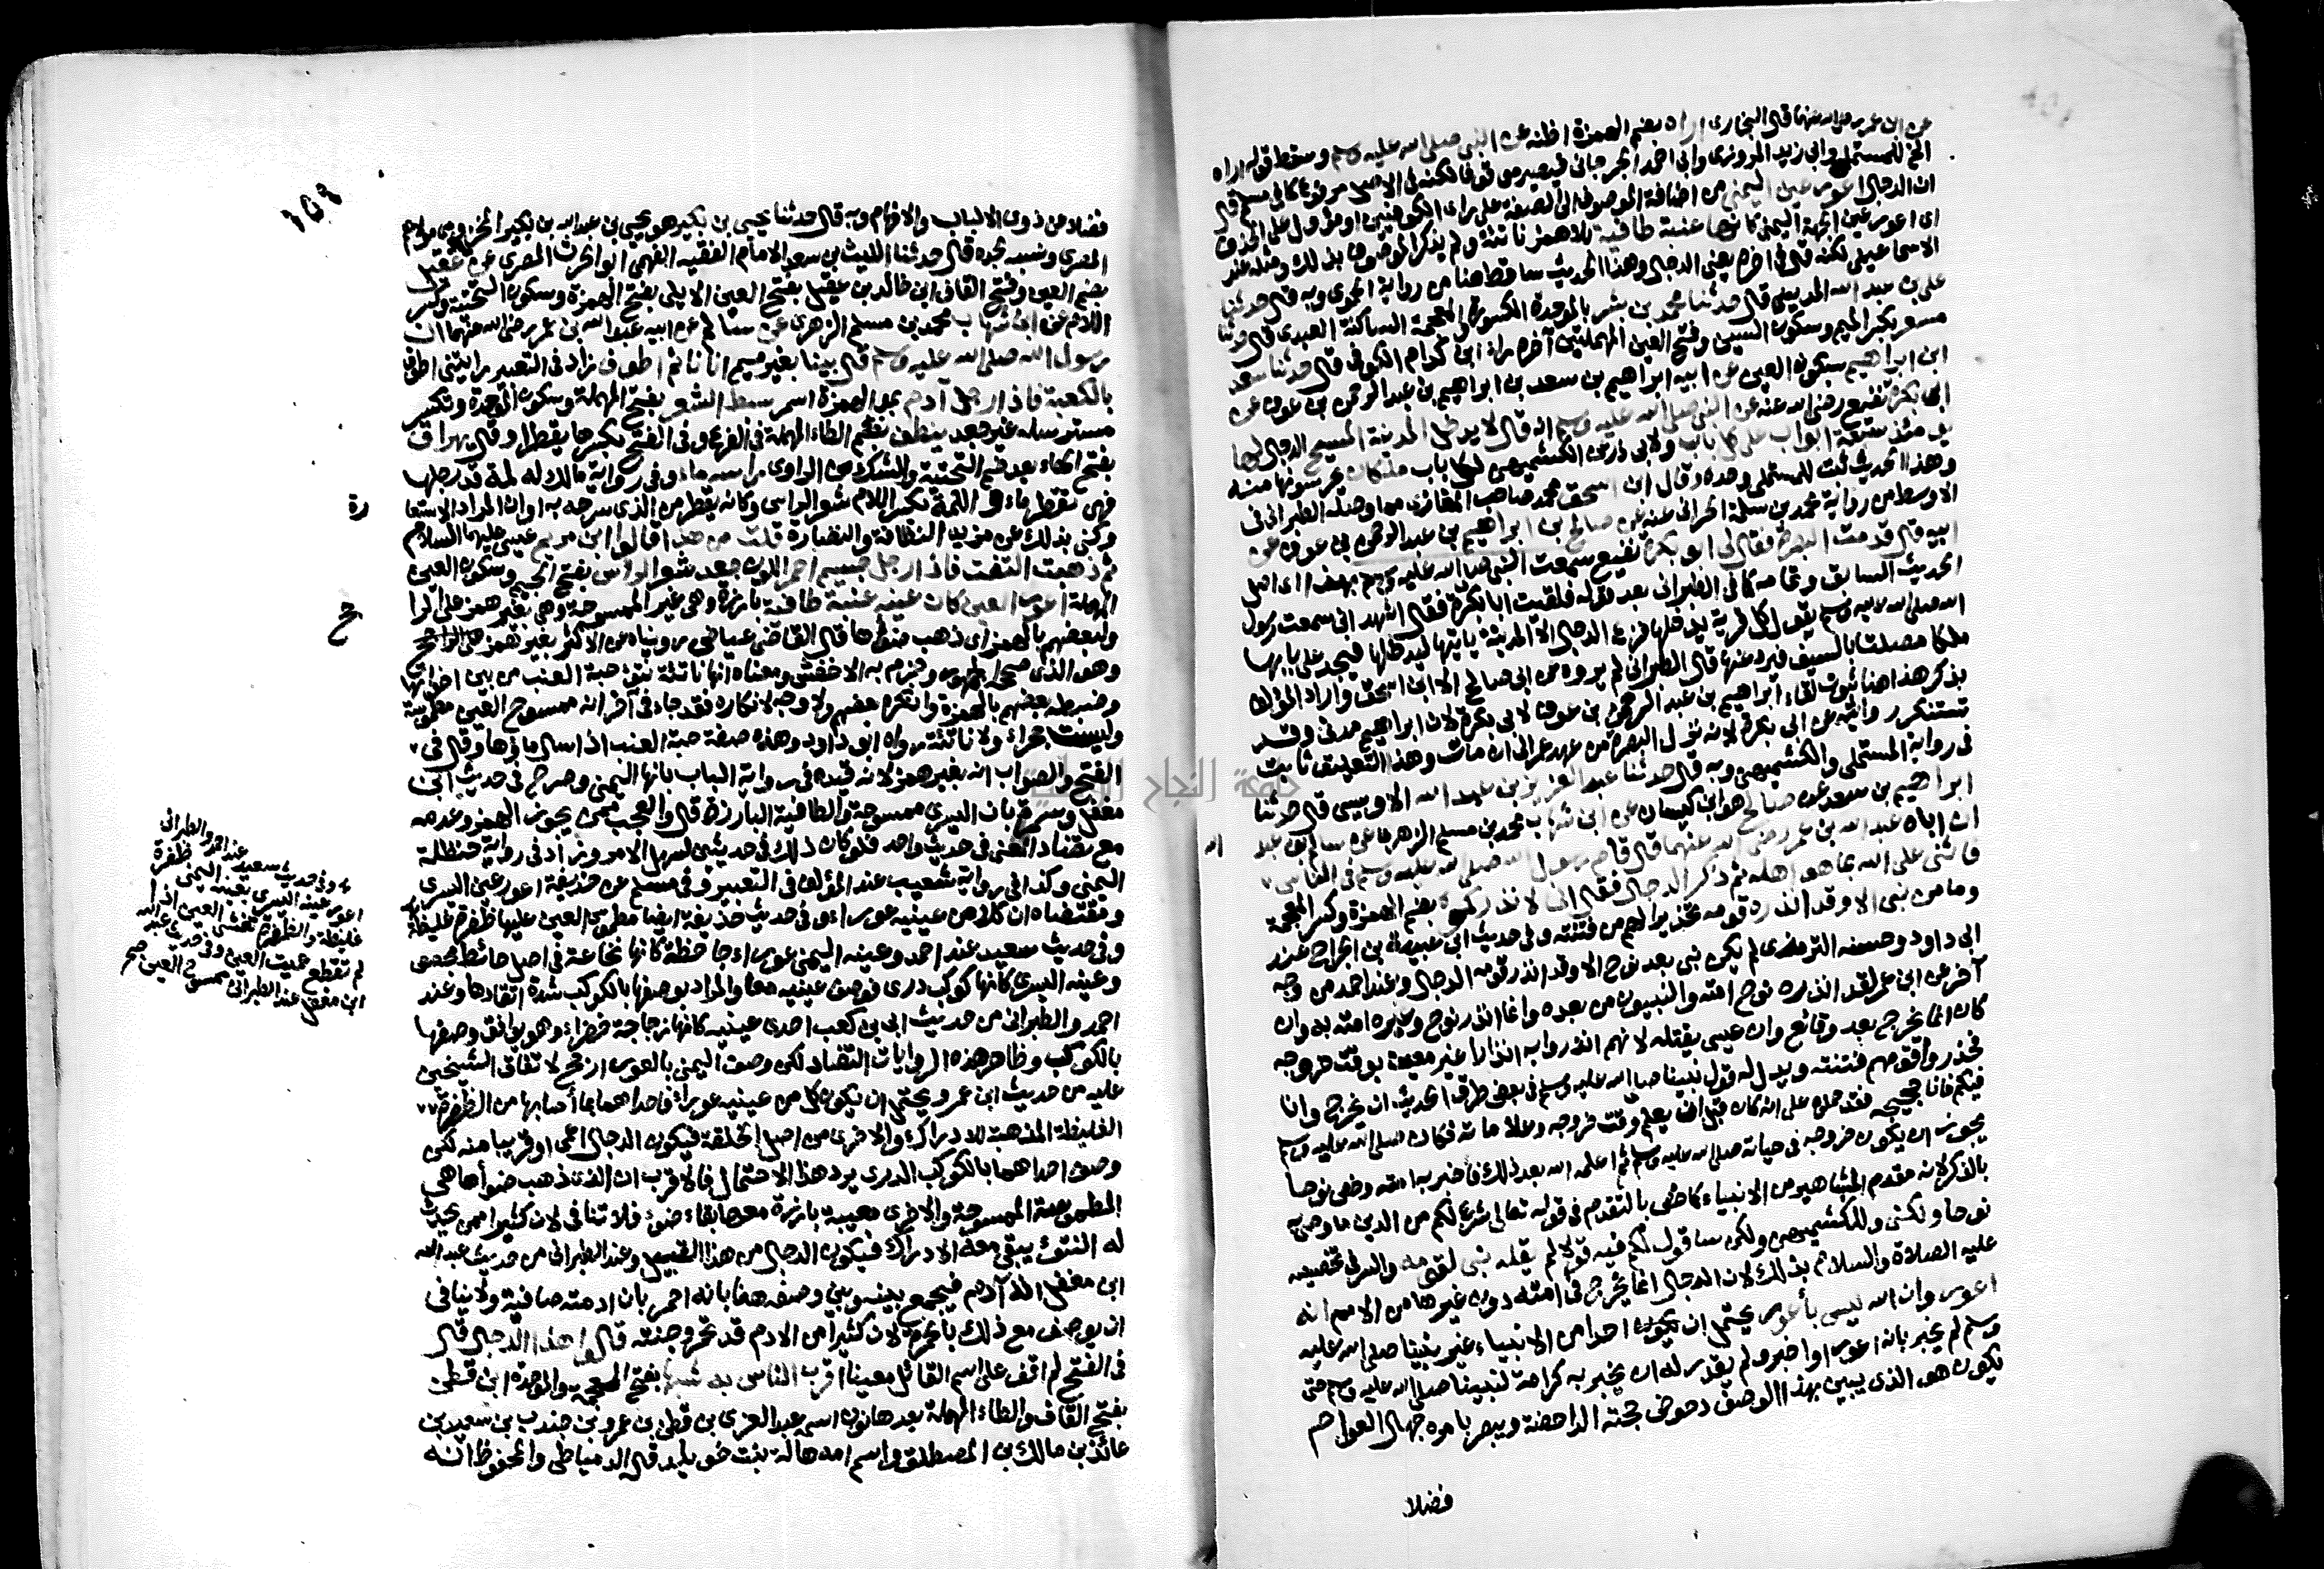 عن ابن عمر رضى الله عنهما قال البخارى اراه بضم الهمزة اظنه عن النبى صلى الله عليه وسلم وسقط قوله اراه
الخ للمستملى وابى زيد المروزى وابى احمد الجرجانى فيصير موقوفا لكنه فى الاصل مرفوع كما فى مسلم قال
ان الدجال اعور عين اليمنى من اضافة الموصوف الى الصفة على راى الكوفيين او مؤول على الحذف
اى اعور عين الجهة اليمنى كانها عنبة طافية بلا همز ناتئة ولم يذكر الموصوف بذلك ومثله عند
الاسماعيلى لكنه قال فى اخره يعنى الدجال وهذا الحديث ساقط هنا من رواية الحموى وبه قال حدثنا
على بن عبد الله المدينى قال حدثنا محمد بن بشر بالموحدة المكسورة والمعجمة الساكنة العبدى قال حدثنا
مسعر بكسر الميم وسكون السين وفتح العين المهملتين آخره راء ابن كدام الكوفى قال حدثنا سعد
ابن ابراهيم بسكون العين عن ابيه ابراهيم بن سعد بن ابراهيم بن عبد الرحمن بن عوف عن
ابى بكرة نفيع رضى الله عنه عن النبى صلى الله عليه وسلم انه قال لا يدخل المدينة المسيح الدجال لها
يومئذ سبعة ابواب على كل باب ولابى ذر عن الكشميهنى لكل باب ملكان يحرسونها منه
وهذا الحديث ثبت للمستملى وحده وقال ابن اسحق محمد صاحب المغازى مما وصله الطبرانى فى
الاوسط من رواية محمد بن سلمة الحرانى عنه عن صالح بن ابراهيم بن عبد الرحمن بن عوف عن
ابيه قال قدمت البصرة فقال لى ابو بكرة نفيع سمعت النبى صلى الله عليه وسلم بهذا اى اصل
الحديث السابق وتمامه كما فى الطبرانى بعد قوله فلقيت ابا بكرة فقال اشهد انى سمعت رسول
الله صلى الله عليه وسلم يقول كل قرية يدخلها فزع الدجال الا المدينة ياتيها ليدخلها فيجد على بابها
ملكا مصلتا بالسيف فيرده عنها قال الطبرانى لم يروه عن ابى صالح الا ابن اسحق واراد المؤلف
بذكر هذا هنا ثبوت لقاء ابراهيم بن عبد الرحمن بن عوف لابى بكرة لان ابراهيم مدنى وقد
تستنكر روايته عن ابى بكرة لانه نزل البصرة من عهد عمر الى ان مات وهذا التعليق ثابت
فى رواية المستملى والكشميهنى وبه قال حدثنا عبد العزيز بن عبد الله الاويسى قال حدثنا
ابراهيم بن سعد عن صالح هو ابن كيسان عن ابن شهاب محمد بن مسلم الزهرى عن سالم بن عبد
الله
ان اباه عبد الله بن عمر رضى الله عنهما قال قام رسول الله صلى الله عليه وسلم فى الناس
فاثنى على الله بما هو اهله ثم ذكر الدجال فقال انى لانذركموه بضم الهمزة وكسر المعجمة
وما من نبى الا وقد انذره قومه تحذيرا لهم من فتنته وفى حديث ابى عبيدة بن الجراح عند
ابى داود وحسنه الترمذى لم يكن نبى بعد نوح الا وقد انذر قومه الدجال وعند احمد من وجه
آخر عن ابن عمر لقد انذره نوح امته والنبيون من بعده وانما انذر نوح وغيره امته به وان
كان انما يخرج بعد وقائع وان عيسى يقتله لانهم انذروا به انذارا غير معين بوقت خروجه
فحذروا قومهم فتنته ويدل له قول نبينا صلى الله عليه وسلم فى بعض طرق الحديث ان يخرج وانا
فيكم فانا حجيجه فقد حملوه على انه كان قبل ان يعلم وقت خروجه وعلاماته فكان صلى الله عليه وسلم
يجوز ان يكون خروجه فى حياته صلى الله عليه وسلم ثم اعلمه الله بعد ذلك فاخبر به امته وخص نوحا
بالذكر لانه مقدم المشاهير من الانبياء كما خص بالتقدم فى قوله تعالى شرع لكم من الدين ما وصى به
نوحا ولكنى وللكشميهنى ولكن ساقول لكم فيه قولا لم يقله نبى لقومه والسر فى تخصيصه
عليه الصلاة والسلام بذلك لان الدجال انما يخرج فى امته دون غيرها من الامم انه
اعور وان الله ليس بأعور يحتمل ان يكون احدا من الانبياء غير نبينا صلى الله عليه
وسلم لم يخبر بانه اعور او اخبر ولم يقدر له ان يخبر به كرامة لنبينا صلى الله عليه وسلم حتى
يكون هو الذى يبين بهذا الوصف دحوض حجته الداحضة ويبصر بامره جهال العوام
فضلا
فضلا من ذوى الالباب والافهام وبه قال حدثنا يحيى بن بكير هو يحيى بن عبد الله بن بكير المخزومى مولاهم
المصرى ونسبه لجده قال حدثنا الليث بن سعد الامام الفقيه الفهمى ابو الحرث المصرى عن عقيل
بضم العين وفتح القاف ابن خالد بن عقيل بفتح العين الايلى بفتح الهمزة وسكون التحتية وكسر
اللام عن ابن شهاب محمد بن مسلم الزهرى عن سالم عن ابيه عبد الله بن عمر رضى الله عنهما ان
رسول الله صلى الله عليه وسلم قال بينا بغير ميم انا نائم اطوف زاد فى التعبير رايتنى اطوف
بالكعبة فاذا رجل آدم بمد الهمزة اسمر سبط الشعر بفتح المهملة وسكون الموحدة وتكسر
مسترسله غير جعد ينطف بضم الطاء المهملة فى الفرع وفى الفتح بكسرها يقطر او قال يهراق
بفتح الهاء بعد ضم التحتية والشك من الراوى راسه ماء وفى رواية مالك له لمة قد رجلها
فهى تقطر ماء واللمة بكسر اللام شعر الراس وكانه يقطر من الذى سرحه به او ان المراد الاستعا
رة
وكنى بذلك عن مزيد النظافة والنضارة قلت من هذا قالوا ابن مريم عيسى عليهما السلام
ثم ذهبت التفت فاذا رجل جسيم احمر اللون جعد شعر الراس بفتح الجيم وسكون العين
المهملة اعور العين كان عينه عنبة طافية بارزة وهى غير الممسوحة وهى بغير همز على الرا
جح
ولبعضهم بالهمز اى ذهب ضوءها قال القاضى عياض رويناه عن الاكثر بغير همز
وهو الذى صححه الجمهور وجزم به الاخفش ومعناه انها ناتئة نتوء حبة العنب من بين اخواتها
وضبطه بعضهم بالهمزة وانكره بعضهم ولا وجه لانكاره فقد جاء فى آخر انه ممسوح العين مطموسة
وليست جحراء ولا ناتئة رواه ابو داود وهذه صفة حبة العنب اذا سال ماؤها وقال فى
الفتح والصواب انه بغير همز لانه قيده فى رواية الباب بانها اليمنى وصرح فى حديث ابن
مغفل وسمرة بان اليسرى ممسوحة والطافية البارزة قال والعجب ممن يجوز الهمز وعدمه
مع تضاد المعنى فى حديث واحد فلو كان ذلك فى حديثين لسهل الامر وزاد فى رواية حنظلة
اليمنى وكذا فى رواية شعيب عند المؤلف فى التعبير وفى مسلم عن حذيفة اعور عين اليسرى
ومقتضاه ان كلا من عينيه عوراء وفى حديث حذيفة ايضا مطموس العين عليها ظفرة غليظة
وفى حديث سعيد عند احمد وعينه اليمنى عوراء جاحظة كانها نخاعة فى اصل حائط مجصص
وعينه اليسرى كانها كوكب درى فوصف عينيه معا والمراد بوصفها بالكوكب شدة اتقادها وعند
احمد والطبرانى من حديث ابى بن كعب احدى عينيه كانها زجاجة خضراء وهو يوافق وصفها
بالكوكب وظاهر هذه الروايات التضاد لكن وصف اليمنى بالعور ارجح لاتفاق الشيخين
عليه من حديث ابن عمر ويحتمل ان يكون كل من عينيه عوراء فاحداهما بما أصابها من الظفرة
الغليظة المذهبة للادراك والاخرى من اصل الخلقة فيكون الدجال اعمى او قريبا منه لكن
وصف احداهما بالكوكب الدرى يرد هذا الاحتمال فالاقرب ان الذى ذهب ضوأها هى
المطموسة الممسوحة والاخرى معيبة بارزة معها بقاء ضوء فلا تنافى لان كثيرا ممن يحدث
له النتوء يبقى معه الادراك فيكون الدجال من هذا القبيل وعند الطبرانى من حديث عبد الله
ابن مغفل انه آدم فيجمع بينه وبين وصفه هنا بانه احمر بان ادمته صافية ولا ينافى
ان يوصف مع ذلك بالحمرة لان كثيرا من الادم قد تحمر وجنته قالوا هذا الدجال قال
فى الفتح لم اقف على اسم القائل معينا اقرب الناس به شبها بفتح المعجمة والموحدة ابن قطن
بفتح القاف والطاء المهملة بعدها نون اسمه عبد العزى بن قطن بن عمرو بن جندب بن سعيد بن
عائذ بن مالك بن المصطلق واسم امه هالة بنت خويلد قال الدمياطى والمحفوظ انه
وفى حديث سعيد عند احمد والطبرانى
اعور عينه اليسرى بعينه اليمنى ظفرة
غليظة والظفرة تغشى العين اذا
لم تقطع عميت العين وفى حديث عبد الله
ابن مغفل عند الطبرانى ممسوح العين صح